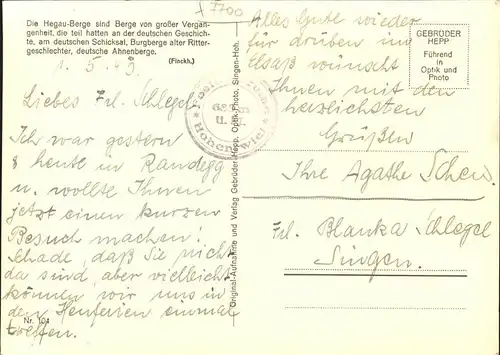 Die Hegau-Berge sind Berge von großer Vergan-
genheit, die teil hatten an der deutschen Geschich-
te, am deutschen Schicksal, Burgberge alter Ritter-
geschlechter, deutsche Ahnenberge.
(Finckh.)
1. 5. 49.
Liebes Frl. Schlegel!
Ich war gestern
& heute in Randegg
u. wollte Ihnen
jetzt einen kurzen
Besuch machen!
Schade, daß Sie nicht
da sind, aber vielleicht
können wir uns in
den Heuferien einmal
treffen.
Nr. 104
Original-Aufnahme und Verlag Gebrüder Hepp, Optik-Photo, Singen-Hoh.
Hohentwiel
7700
Alles Gute wieder
für drüben im
Elsaß wünscht
Ihnen mit den
herzlichsten
Grüßen
Ihre Agathe
GEBRÜDER
HEPP
Führend
in
Optik und
Photo
Frl. Blanka Schlegel
Singen.